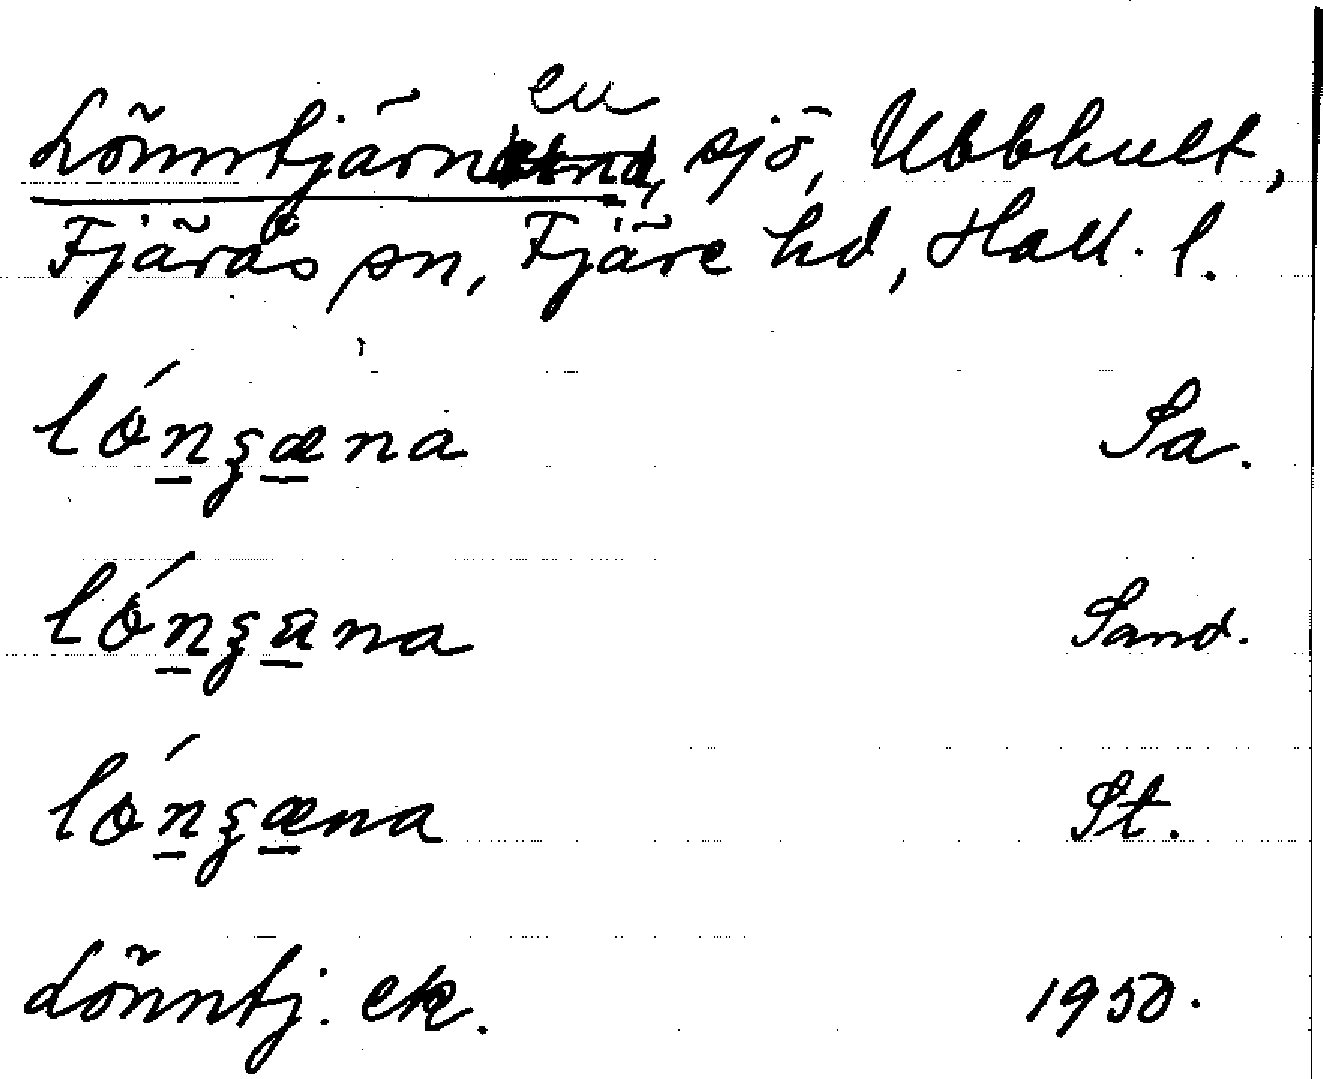 Lönntjärnen, sjö, Ubbhult,
Fjärås sn, Fjäre hd, Hall. l.
lónʒæna Sa.
lónʒana Sand.
lónʒæna St.
Lönntj. ek. 1950.